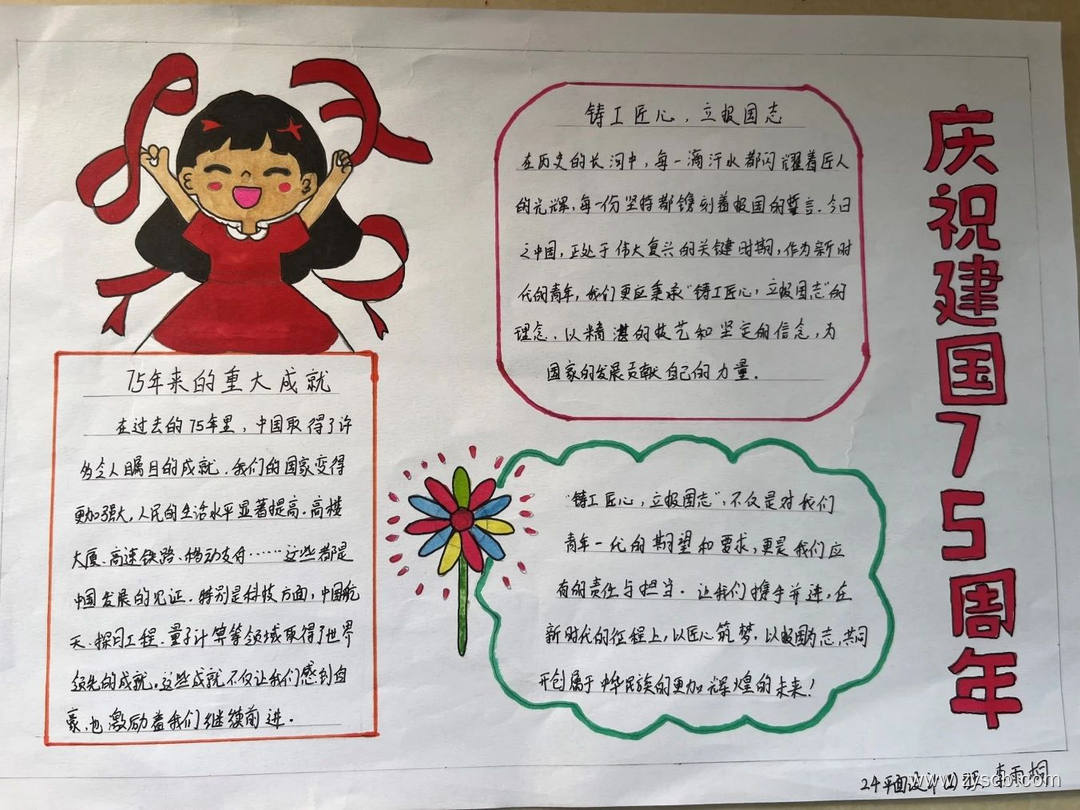 庆祝建国75周年
铸工匠心，立报国志
在历史的长河中，每一滴汗水都闪耀着匠人
的光辉，每一份坚持都镌刻着报国的誓言。今日
之中国，正处于伟大复兴的关键时期，作为新时
代的青年，我们更应秉承“铸工匠心，立报国志”的
理念。以精湛的技艺和坚定的信念，为
国家的发展贡献自己的力量。
75年来的重大成就
在过去的75年里，中国取得了许
多令人瞩目的成就。我们的国家变得
更加强大，人民的生活水平显著提高。高楼
大厦、高速铁路、移动支付……这些都是
中国发展的见证。特别是科技方面，中国航
天、探月工程、量子计算等领域取得了世界
领先的成就。这些成就不仅让我们感到自
豪，也激励着我们继续前进。
“铸工匠心，立报国志”，不仅是对我们
青年一代的期望和要求，更是我们应
有的责任与担当。让我们携手并进，在
新时代的征程上，以匠心筑梦，以报国为志，共同
开创属于中华民族的更加辉煌的未来！
24平面设计